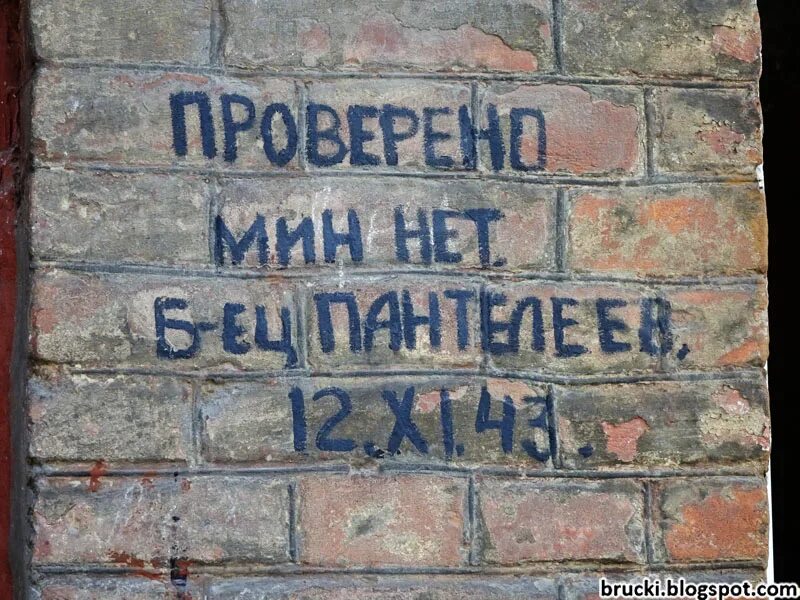 ПРОВЕРЕНО
МИН НЕТ.
Б-ЕЦ ПАНТЕЛЕЕВ.
12.XI.43.
brucki.blogspot.com